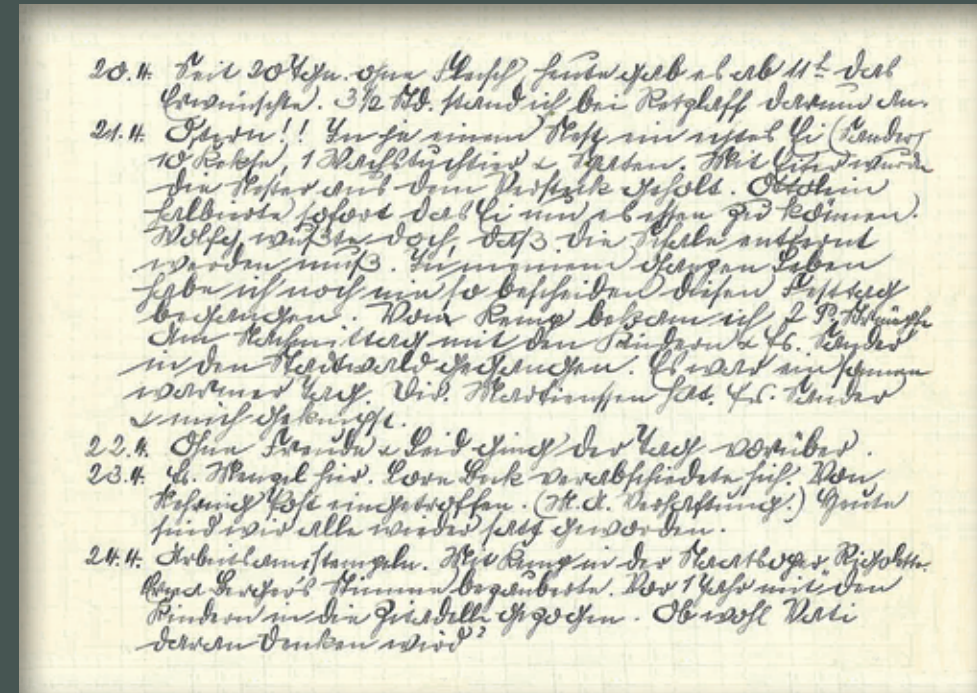 20.4. Seit 20 Tgn. ohne Fleisch, heute gab es ab 11h das
Erwünschte. 3½ Std. stand ich bei Retzlaff darum an.
21.4. Ostern!! In je einem Nest ein echtes Ei (Sander)
10 Kekse, 1 Wachstuchtier & Spaten. Mit Eifer wurde
die Nester aus dem Versteck geholt. Ottolein
halbierte sofort das Ei um es essen zu können.
Wolfg. wußte doch, daß die Schale entfernt
werden muß. In meinem ganzen Leben
habe ich noch nie so bescheiden diesen Festtag
begangen. Vom Kemp bekam ich 2 P. Strümpfe
Am Nachmittag mit den Kindern & Fr. Sander
in den Stadtwald gegangen. Es war ein
warmer Tag. Dir. Martienssen hat Fr. Sander
& mich geknipst.
22.4. Ohne Freude & Leid ging der Tag vorüber.
23.4. Fr. Mengel hier. Lore Beck verabschiedete sich. Von
Nehring Post eingetroffen. (M.A. Verhaftung.) Heute
sind wir alle wieder satt geworden.
24.4. Arbeitsamt stempeln. Mit Kemp in der Staatsoper, Rigoletto.
Erna Berger's Stimme bezauberte. Vor 1 Jahr mit den
Kindern in die Zitadelle gezogen. Ob wohl Vati
daran denken wird?